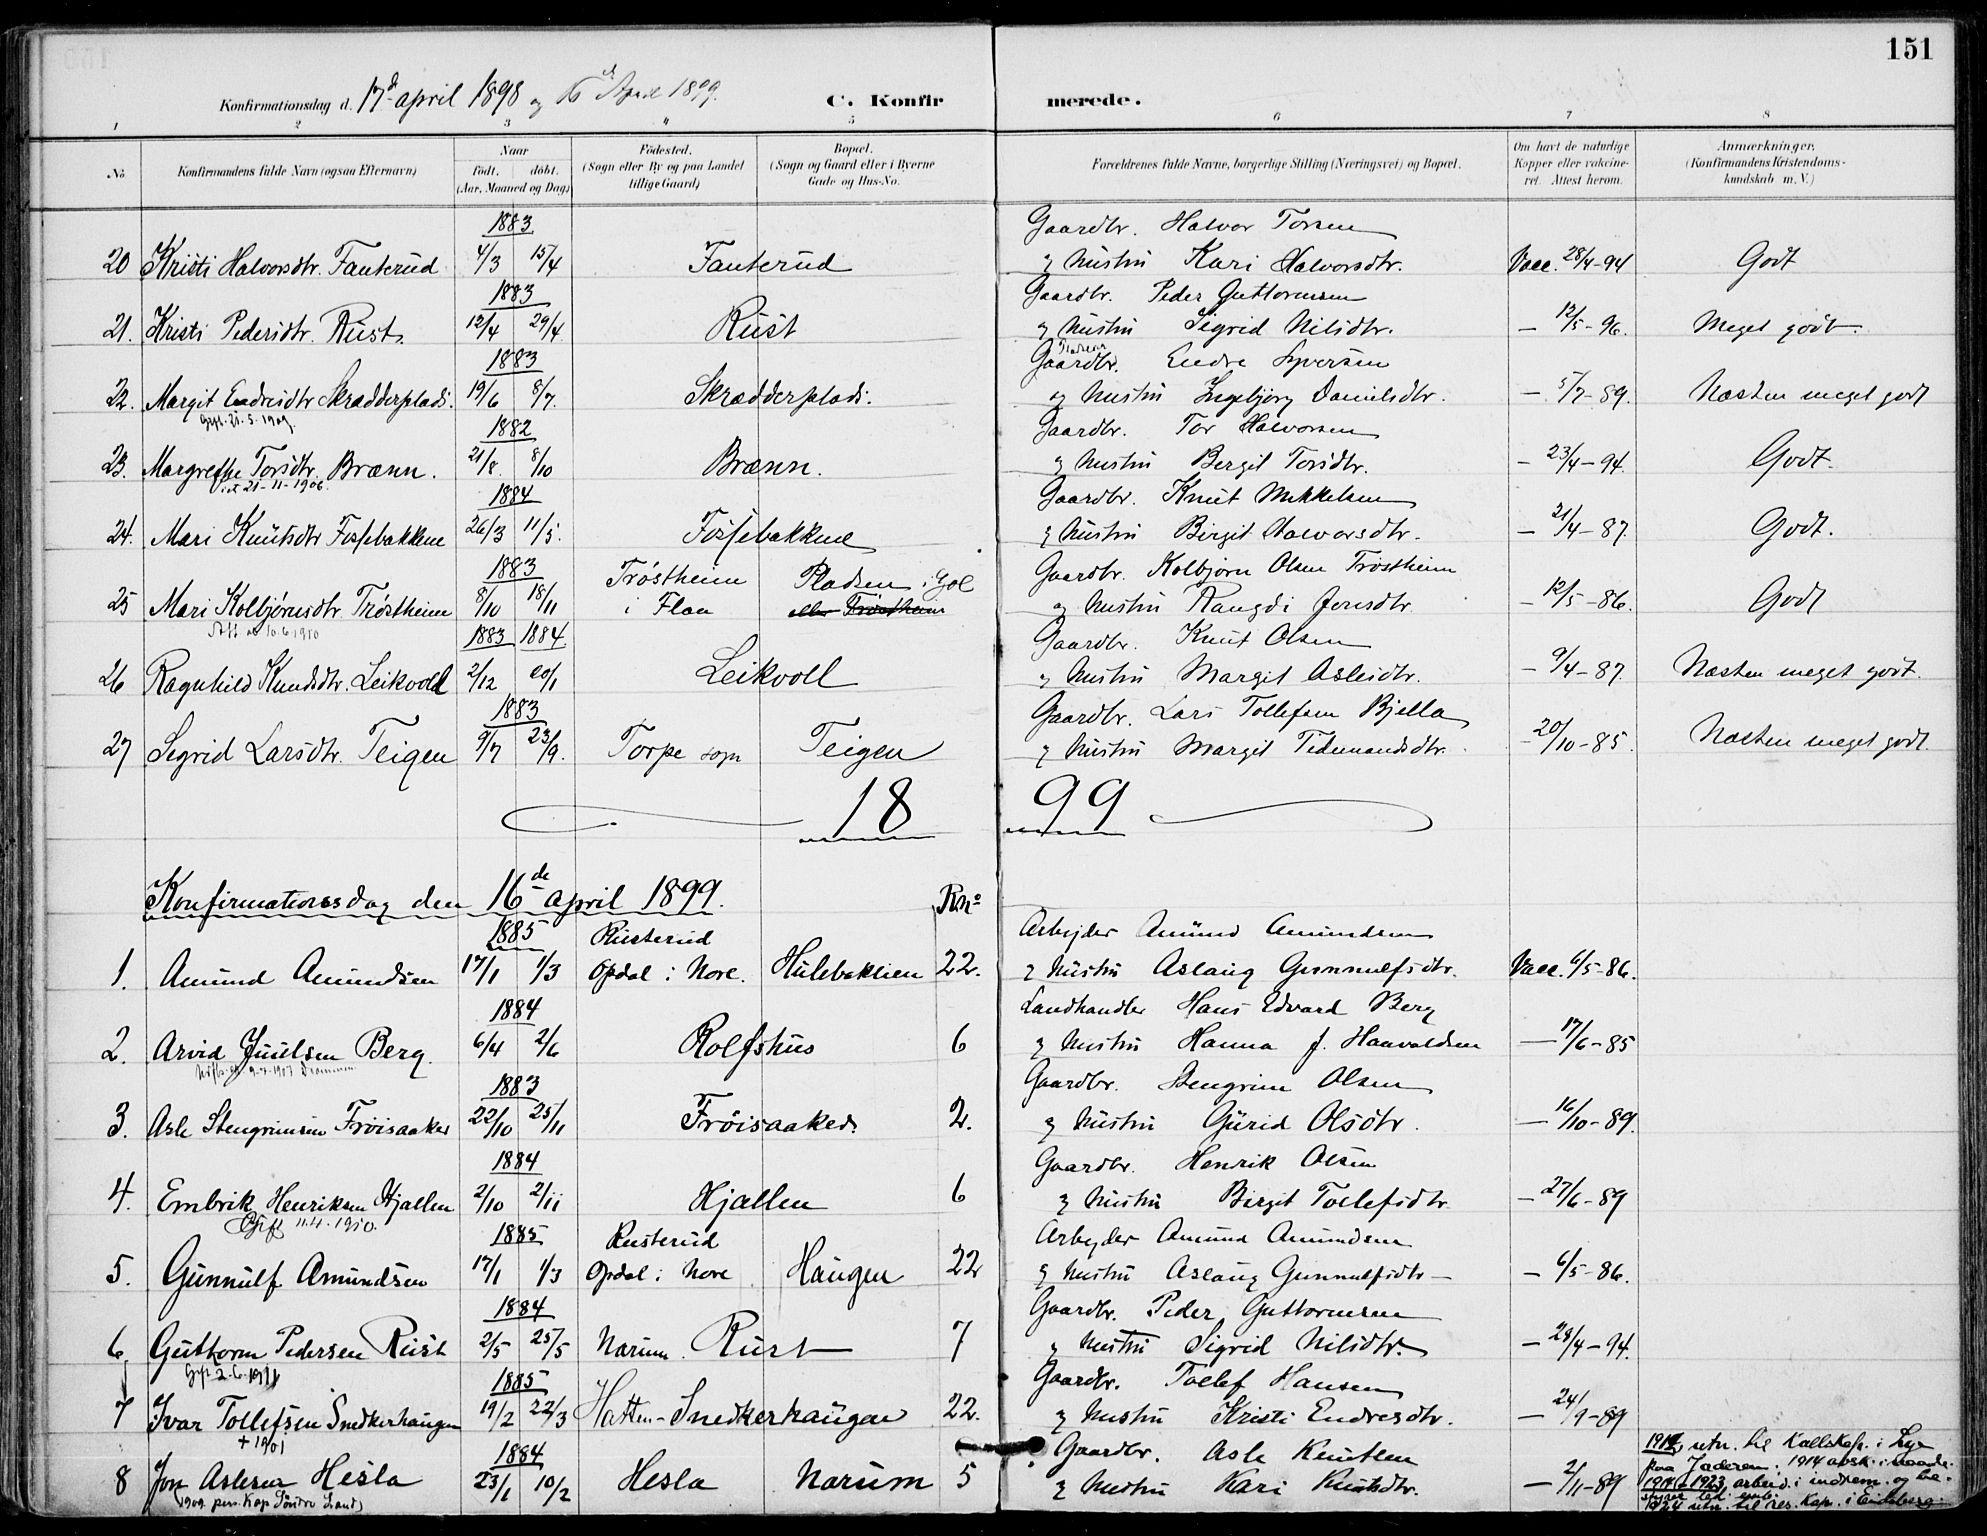 151
Konfirmationsdag d. 17de april 1898 og 16de April 1899. C. Konfirmerede.
1 2 3 4 5 6 7 8
No Konfirmandens fulde Navn (ogsaa Efternavn) Naar født. døbt. (Aar, Maaned og Dag) Fødested. (Sogn eller By og paa Landet tillige Gaard) Bopæl. (Sogn og Gaard eller i Byerne Gade og Hus-No. Forældrenes fulde Navne, borgerlige Stilling (Næringsvei) og Bopæl. Om havt de naturlige Kopper eller vakcineret. Attest herom. Anmærkninger. (Konfirmandens Kristendomskundskab m. V.)
1883 Gaardbr. Halvor Torsen
20 Kristi Halvorsdtr. Fanterud 4/3 15/4 Fanterud og hustru Kari Halvorsdtr. Vacc. 28/4-94 Godt
1883 Gaardbr. Peder Guttormsen
21. Kristi Pedersdtr. Rust 12/4 29/4 Rust og hustru Sigrid Nilsdtr. — 12/5-96. Meget godt.
1883 Gaardbr. Endre Syversen
22. Margit Endresdtr Skrædderplads. 19/6 8/7. Skrædderplads. og hustru Ingebjørg Danielsdtr. — 5/7-89. Næsten meget godt
Gift 21.5.1909.
1882 Gaardbr. Tor Halvorsen
23. Margrethe Torsdtr. Brænn. 21/8 8/10 Brænn. og hustru Bergit Torsdtr. — 23/4-94. Godt.
21-11-1906.
1884 Gaardbr. Knut Mikkelsen
24. Mari Knutsdtr Fossebakkene 26/3 11/5. Fossebakkene og hustru Birgit Halvorsdtr. — 21/4-87. Godt.
1883 Trøstheim Pladsen i Gol Gaardbr. Kolbjørn Olsen Trøstheim
25 Mari Kolbjørnsdtr. Trøstheim 8/10 18/11 i Flaa eller Trøstheim og hustru Rangdi Jonsdtr. — 12/5-86. Godt
10.6.1910
1883 1884 Gaardbr. Knut Olsen
26 Ragnhild Knudsdtr. Leikvoll 2/12 20/1 Leikvoll og hustru Margit Asledtr. — 9/4-87 Næsten meget godt.
1883 Gaardbr. Lars Tollefsen Bjella
27 Sigrid Larsdtr. Teigen 9/7 23/9. Torpe sogn Teigen og hustru Margit Tidemandsdtr. — 20/10-85. Næsten meget godt.
1899
Konfirmationsdag den 16de april 1899. Rno
1885 Rusterud Arbejder Amund Amundsen
1. Amund Amundsen 17/1 1/3 Opdal i Nore. Hulebakken 22. og hustru Aslaug Gunnulfsdtr. Vacc. 6/5-86.
1884 Landhandler Hans Edvard Berg
2. Arvid Juulsen Berg. 6/4 2/6 Rolfshus 6 og hustru Hanna J. Haavaldsen — 17/6-85
9-7-1907 Drammen
1883 Gaardbr. Stengrim Olsen
3. Asle Stengrimsen Frøisaaker 22/10 25/11 Frøisaaker. 2. og hustru Gurid Olsdtr. — 16/10-89.
1884 Gaardbr. Henrik Olsen
4. Embrik Henriksen Hjallen 2/10 2/11 Hjallen 6 og hustru Birgit Tollefsdtr. — 27/6-89
Gift 11.4.1910.
1885 Rusterud Arbejder Amund Amundsen
5. Gunnulf Amundsen 17/1 1/3 Opdal i Nore Haugen 22 og hustru Aslaug Gunnulfsdtr — 6/5-86.
1884 Gaardbr. Peder Guttormsen
6. Guttorm Pedersen Rust 2/5 25/5 Narum Rust 7 og hustru Sigrid Nilsdtr. — 28/4-94.
Gift 2.6.1911
1885 Gaardbr. Tollef Hansen
7 Ivar Tollefsen Snedkerhaugen 19/2 22/3 Hatten-Snedkerhaugen 22. og hustru Kristi Endresdtr. — 24/9-89
+ 1901
1884 Gaardbr. Asle Knutsen
8 Jon Aslesen Hesla 23/1 10/2 Hesla Narum 5 og hustru Kari Knutsdtr. — 2/11-89
1909 pers. Kap Søndre Land
utn. til Kallskap. i Lye
paa Jæderen. 1914
1914-1923 arbeid. i indrem. og be-
1924 utn. til res. Kap. i Eidsberg.